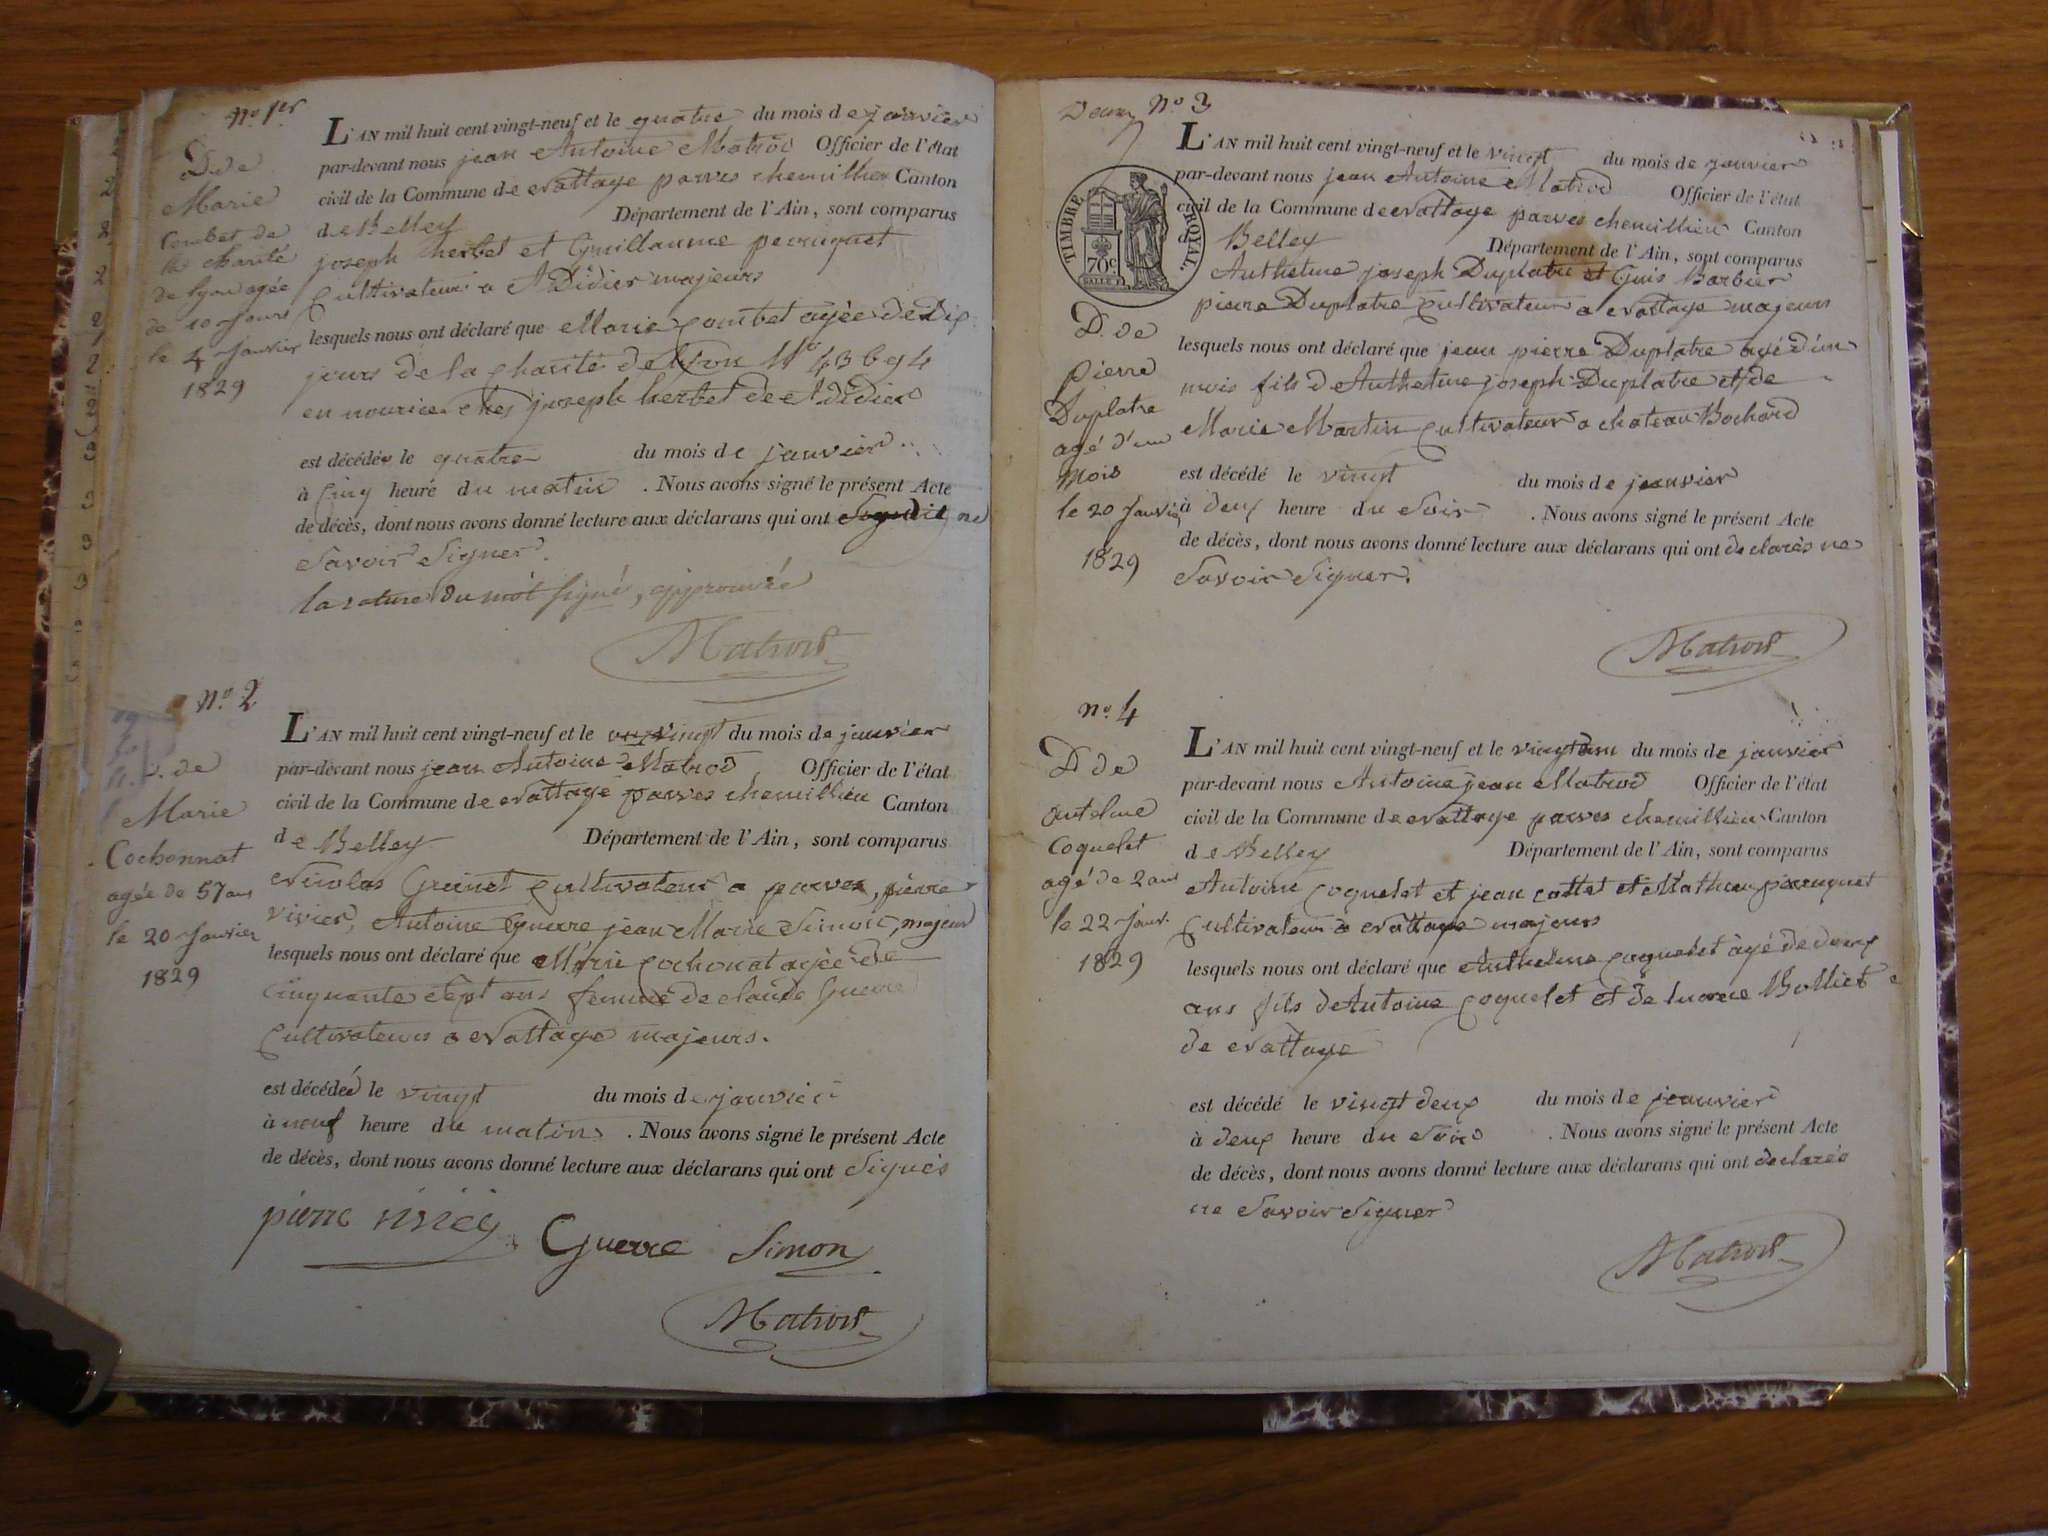 No 1er
D. de
Marie
Combet de
la charité
de Lyon agée
de 10 jours
le 4 Janvier
1829
L'AN mil huit cent vingt-neuf et le quatre du mois de janvier
par-devant nous jean Antoine Matrod Officier de l'état
civil de la Commune de Nattage parves chemillieu Canton
de Belley Département de l'Ain, sont comparus
joseph herbet et Guillaume peruguet
Cultivateur a St Didier majeurs
lesquels nous ont déclaré que Marie combet agée de Dix
jours de la charité de Lyon No 43694
en nourice ches joseph herbet de St didier
est décédée le quatre du mois de janvier
à Cinq heure du matin . Nous avons signé le présent Acte
de décès, dont nous avons donné lecture aux déclarans qui ont ne
Savoir Signer.
la rature du mot signé, approuvée
Matrod
No 2
D. de
Marie
Cochonnat
agée de 57 ans
le 20 Janvier
1829
L'AN mil huit cent vingt-neuf et le vingt du mois de janvier
par-devant nous jean Antoine Matrod Officier de l'état
civil de la Commune de Nattage parves chemillieu Canton
de Belley Département de l'Ain, sont comparus
Nicolas Grinet Cultivateur a parves, pierre
vivier, Antoine Guerre jean Marie Simon, majeur
lesquels nous ont déclaré que Marie Cochonat agée de
Cinquante Sept ans femme de claude Guerre
Cultivateurs a Nattage majeurs.
est décédeé le vingt du mois de janvier
à neuf heure du matin . Nous avons signé le présent Acte
de décès, dont nous avons donné lecture aux déclarans qui ont Signés
pierre vivier Guerre Simon
Matrod
Deux No 3
TIMBRE ROYAL.
70c
D. de
Pierre
Duplatre
agé d'un
mois
le 20 Janvier
1829
L'AN mil huit cent vingt-neuf et le vingt du mois de janvier
par-devant nous jean Antoine Matrod Officier de l'état
civil de la Commune de Nattage parves chemillieu Canton
d Belley Département de l'Ain, sont comparus
Anthelme joseph Duplatre et Guis Barbier
pierre Duplatre Cultivateur a Nattage majeurs
lesquels nous ont déclaré que jean pierre Duplatre agé d'un
mois fils d Anthelme joseph Duplatre et de
Marie Martin Cultivateur a chateau Bochard
est décédé le vingt du mois de janvier
à deux heure du Soir . Nous avons signé le présent Acte
de décès, dont nous avons donné lecture aux déclarans qui ont declarés ne
Savoir Signer.
Matrod
No 4
D. de
antelme
Coquelet
agé de 2 ans
le 22 Janv.
1829
L'AN mil huit cent vingt-neuf et le du mois de janvier
par-devant nous Antoine jean Matrod Officier de l'état
civil de la Commune de Nattage parves chemillieu Canton
de Belley Département de l'Ain, sont comparus
Antoine Coquelet et jean cottet et Mathieu peruguet
Cultivateur a Nattage majeurs
lesquels nous ont déclaré que Anthelme Coquelet âgé de deux
ans fils de Antoine Coquelet et de Bolliet
de Nattage
est décédé le vingt deux du mois de janvier
à deux heure du Soir . Nous avons signé le présent Acte
de décès, dont nous avons donné lecture aux déclarans qui ont declarés
ne Savoir Signer
Matrod